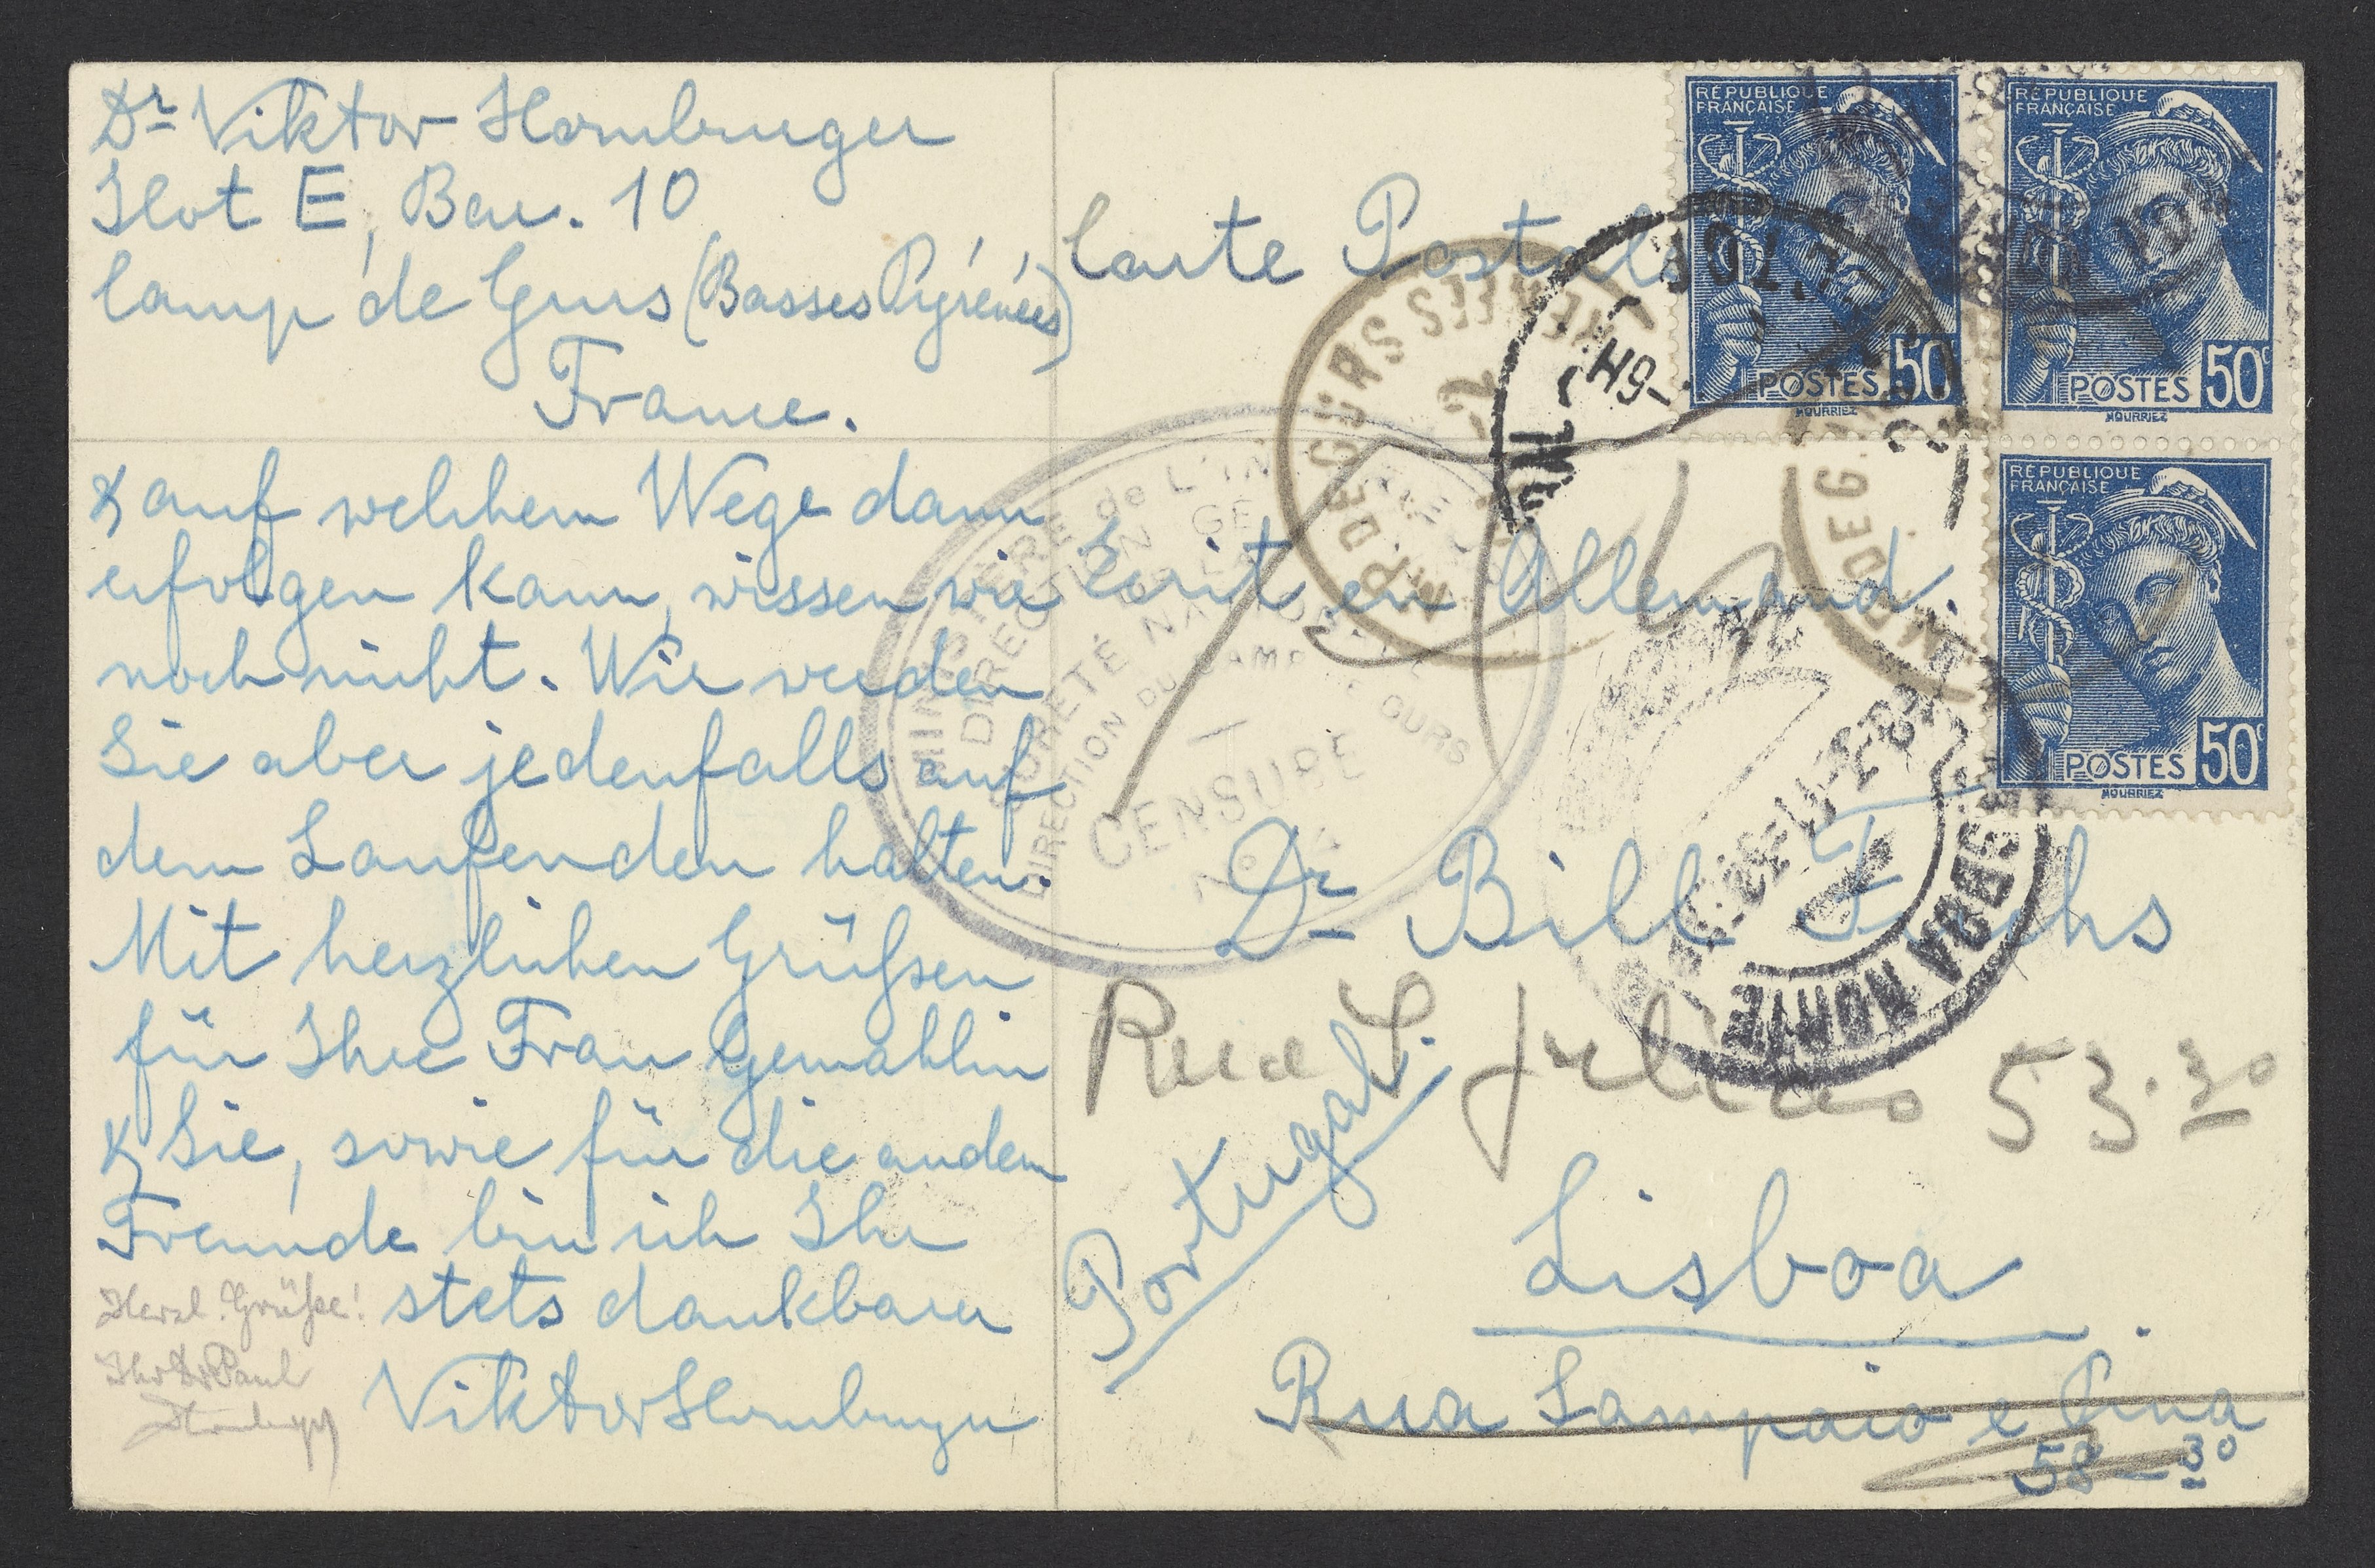 Dr Viktor Homburger
Ilot E, Bar. 10
Camp de Gurs (Basses Pyrénées)
France.
& auf welchem Wege dann
erfolgen kann, wissen wir
noch nicht. Wir werden
Sie aber jedenfalls auf
dem Laufenden halten.
Mit herzlichen Grüßen
für Ihre Frau Gemahlin
& Sie, sowie für die andern
Freunde bin ich Ihr
stets dankbarer
Viktor Homburger
Herzl. Grüße!
Ihr Dr Paul
Homburger
Carte Postale
Écrit en Allemand.
Dr Bill Fuchs
Rua S. Julião 53.3º
Portugal.
Lisboa.
Rua Sampaio e Pina
58 - 3º
RÉPUBLIQUE
FRANÇAISE
POSTES 50c
MOURRIEZ
RÉPUBLIQUE
FRANÇAISE
POSTES 50c
MOURRIEZ
RÉPUBLIQUE
FRANÇAISE
POSTES 50c
MOURRIEZ
MINISTÈRE de L'IN
DIRECTION GÉ
SURETÉ NA
DIRECTION DU CAMP DE GURS
CENSURE
No
DE GURS
NÉES
LISBOA NORTE